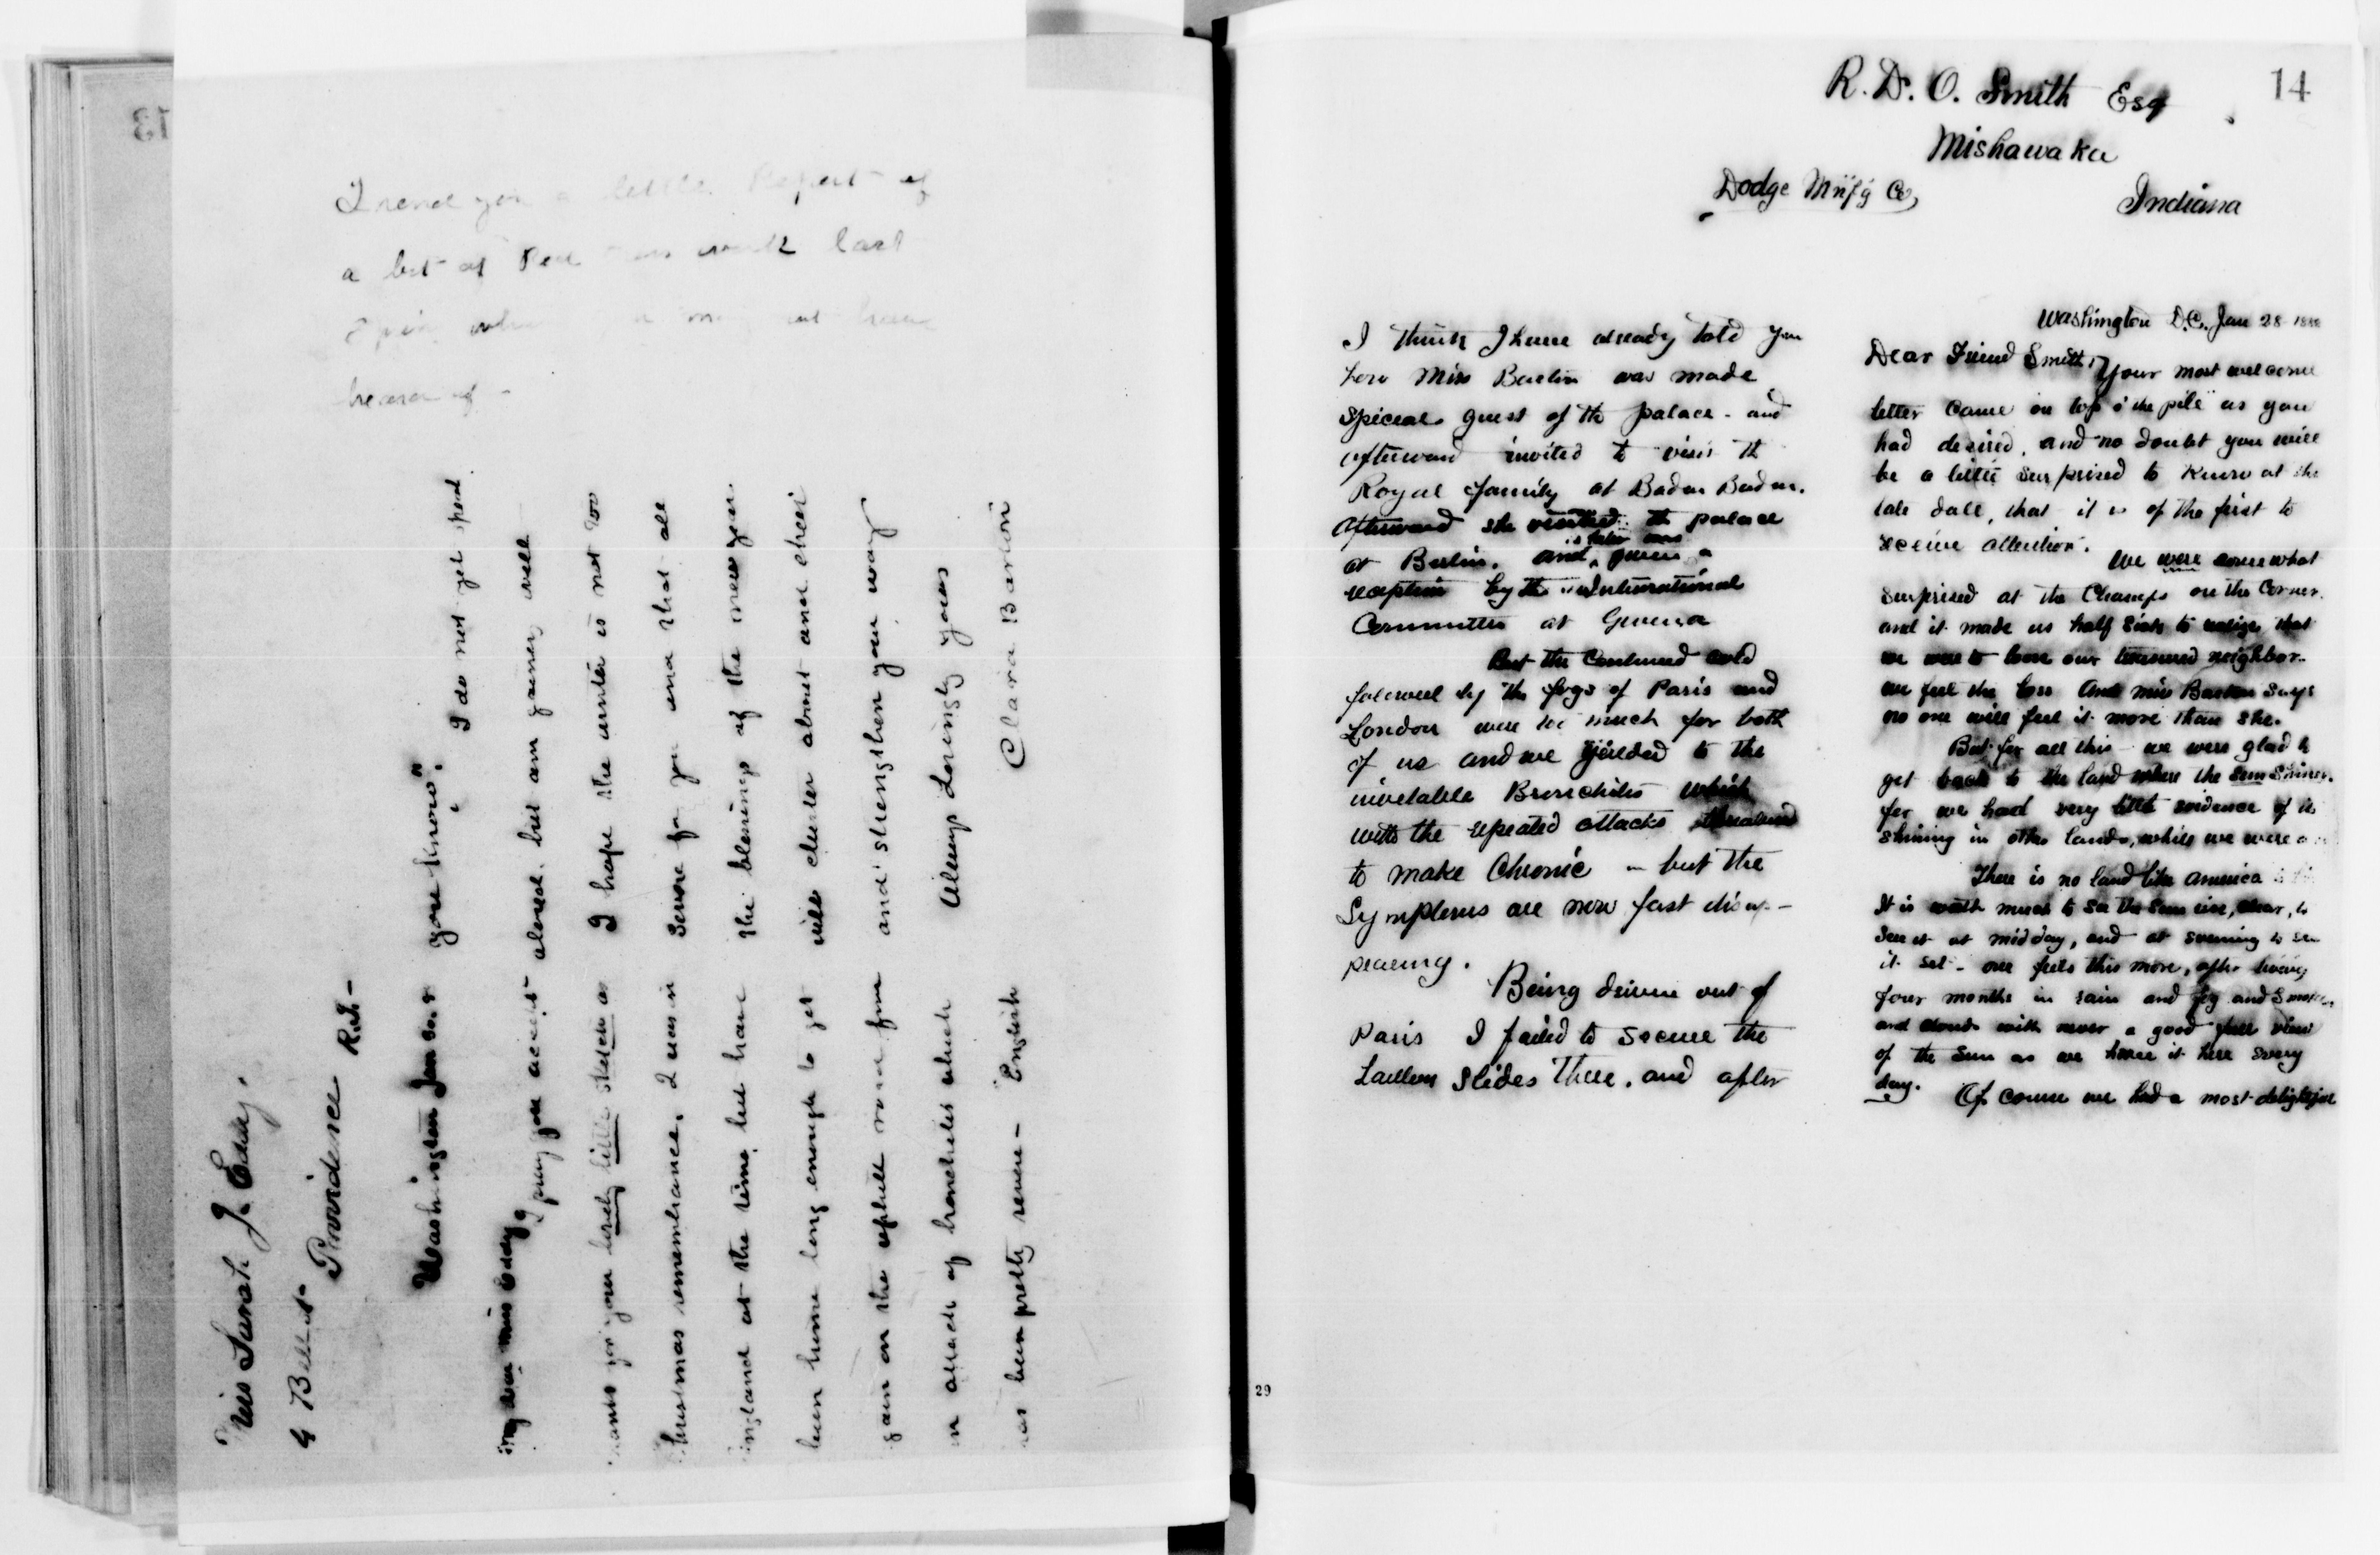 13
I send you a little Report of
a bit of Red work last
heard of -
Miss Sarah J. Eddy,
4 Bell St-
Providence R.I. -
Washington Jan
my dear miss Eddy
I pray you accept
thanks for your lovely little sketch as
Christmas remembrance. I was in
England at the time, but have
been home long enough to get
gain on the uphill road from
an attack of bronchitis which
has been pretty severe - "English
you know". I do not get
abroad. but am gaining well
I hope the winter is not too
severe for you and that all
the blessings of the new year
will cluster about and cheer
and strengthen your way
Always Lovingly yours
Clara Barton
14
R. D. O. Smith Esq
Mishawaka
Dodge Mn'f'g Co,
Indiana
Washington D.C. Jan 28
Dear Friend Smith, Your most welcome
letter came on top o' the pile" as you
had desired, and no doubt you will
be a little surprised to know at the
late date, that it is of the first to
receive attention.
We were somewhat
surprised at the Change on the Corner.
and it made us half sick to realize that
we were to loose our treasured neighbor.
we feel the loss And miss Barton says
no one will feel it more than she.
But for all this - we were glad to
get back to the land where the sun shines.
for we had very little evidence of its
shining in other lands, while we were
There is no land like america
It is worth much to see the Sun rise, clear, to
see it at midday, and at evening to see
it set - one feels this more, after living
four months in rain and fog and Smoke,
and clouds with never a good full view
of the sun as we have it here every
day. Of course we had a most delightful
I think I have already told you
how Miss Barton was made
special guest of the palace - and
afterward invited to visit the
Royal family at Baden Baden.
Afterward she visited the palace
at Berlin. and later was given a
reception by the International
Committee at Geneva
But the Continued cold
followed by the fogs of Paris and
London were too much for both
of us and we yielded to the
inevitable Bronchitis which
with the repeated attacks threatened
to make Chronic - but the
Symptoms are now fast disap-
pearing.
Being driven out of
Paris I failed to secure the
Lantern Slides There. and after
29